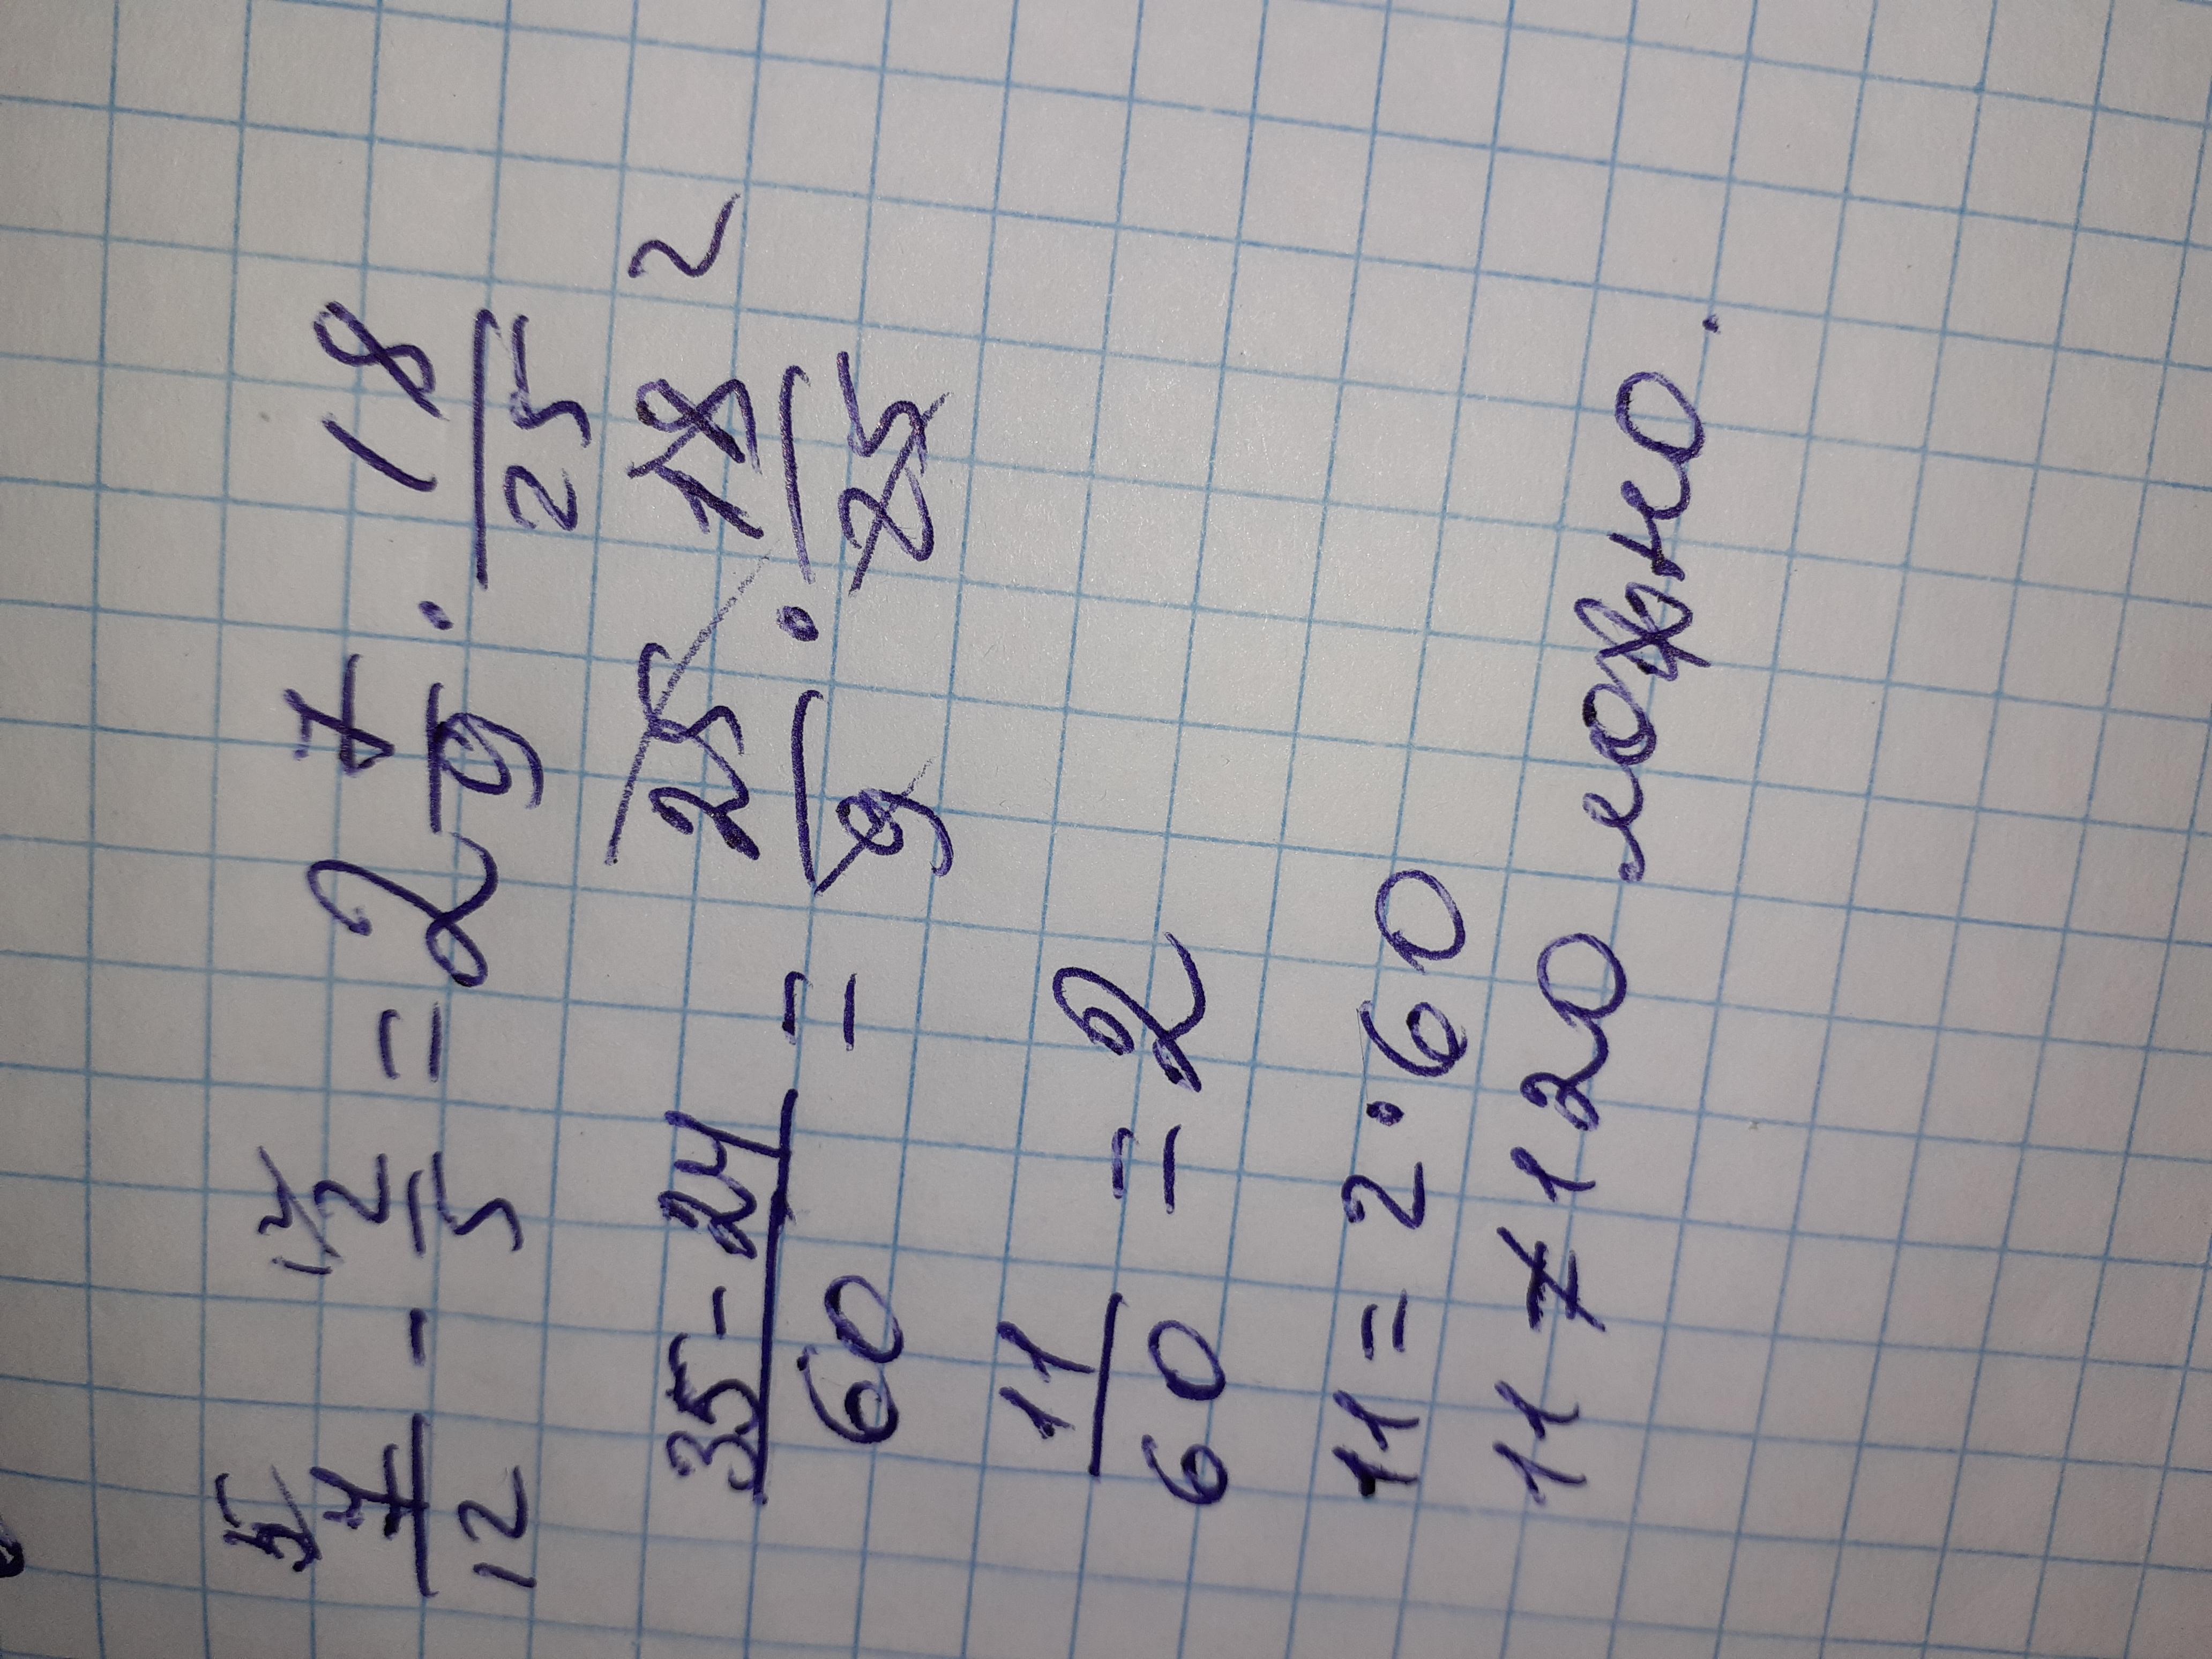 5/ 7/12 - 12/ 2/5 = 2 7/9 · 18/25
35-24/60 = 25/9 · 18/25 2
11/60 = 2
11 = 2·60
11 ≠ 120 ложно.